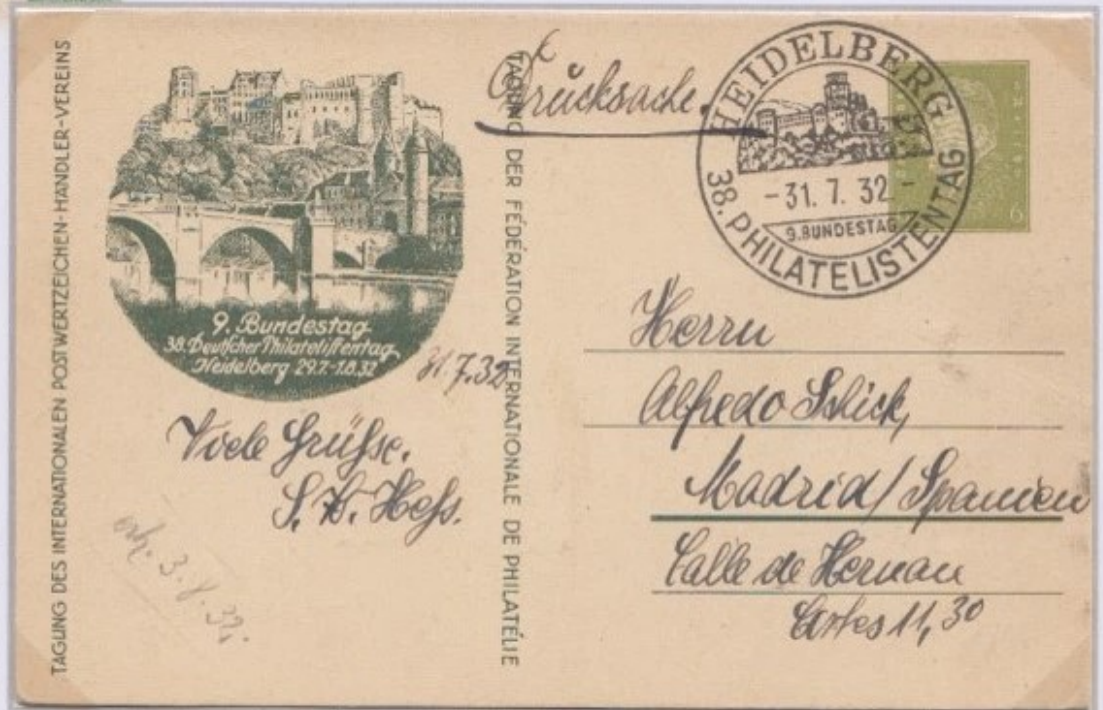 TAGUNG DES INTERNATIONALEN POSTWERTZEICHEN-HÄNDLER-VEREINS
9. Bundestag
38. Deutscher Philatelistentag
Heidelberg 29.7.-1.8.32
31.7.32
Viele Grüße.
S. H. Heß.
erh. 3.8.32
TAGUNG DER FÉDÉRATION INTERNATIONALE DE PHILATÉLIE
Drucksache.
HEIDELBERG
-31. 7. 32-
9. BUNDESTAG
38. PHILATELISTENTAG
6
Herrn
Alfredo
Madrid/Spanien
Calle de Hernan
Cortes 11, 30